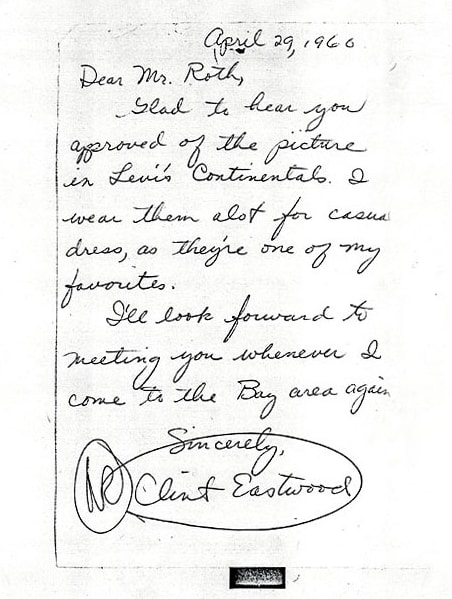 April 29, 1960
Dear Mr. Roth,
Glad to hear you
approved of the picture
in Levi's Continentals. I
wear them alot for casua
dress, as they're one of my
favorites.
I'll look forward to
meeting you whenever I
come to the Bay area again
Sincerely,
Clint Eastwood